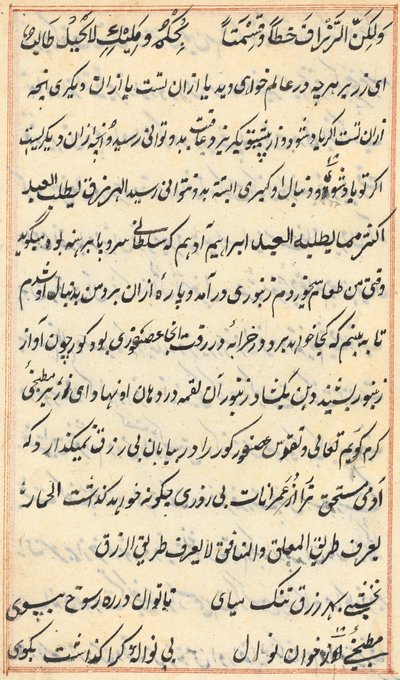 ولکن الرزاف خطاً وقسمتاً بحکمة وملیك لا بحیل طالب
ای زریر هرچه در عالم خواهی دید یا ازان تست یا ازان دیکری انچه
ازان تست اکر باد شود و از پیش تو بکریزد عاقبت بدو توانی رسید و انچه ازان دیکریست
اکر تو باد شوی و دنبال او کیری البتة بدو نتوانی رسید الرزق لیطلب العبد
اکثر مما یطلبه العبد ابراهیم آدهم که سلطانی سر و پا برهنه بود میکوید
وقتی من طعام میخوردم زنبوری در آمد و پارۀ ازان برد من بدنبال او شدم
تا به بینم که کجا خواهد برد در خرابۀ در رفت انجا عصفوری بود کور چون آواز
زنبور بشنید دهن بکشاد زنبور آن لقمه در دهان او نهاد ای
کرم کویم تعالی وتقدس عصفور کور را در بیابان بی رزق نمیکذارد که
آدمی مستحق تر از بی روزی چکونه خواهد کذاشت
یعرف طریق المعلق والمنافق لا یعرف طریق الرزق
نخشبی بهر رزق تنک میای تا توان در ره رسوخ بپوی
مطبخی از خوان نوال بی نواله کرا کذاشت بکوی